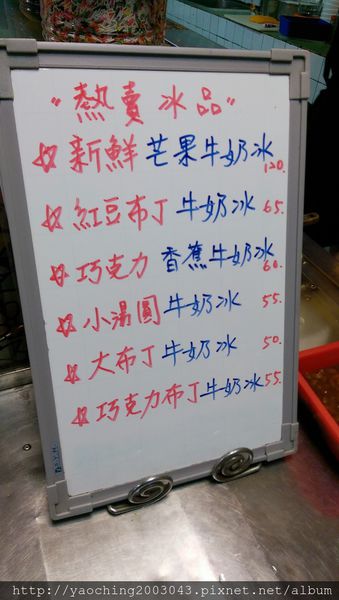 "熱賣冰品"
新鮮芒果牛奶冰 120.
紅豆布丁牛奶冰 65.
巧克力香蕉牛奶冰 60.
小湯圓牛奶冰 55.
大布丁牛奶冰 50.
巧克力布丁牛奶冰 55.
http://yaoching2003043.pixnet.net/album